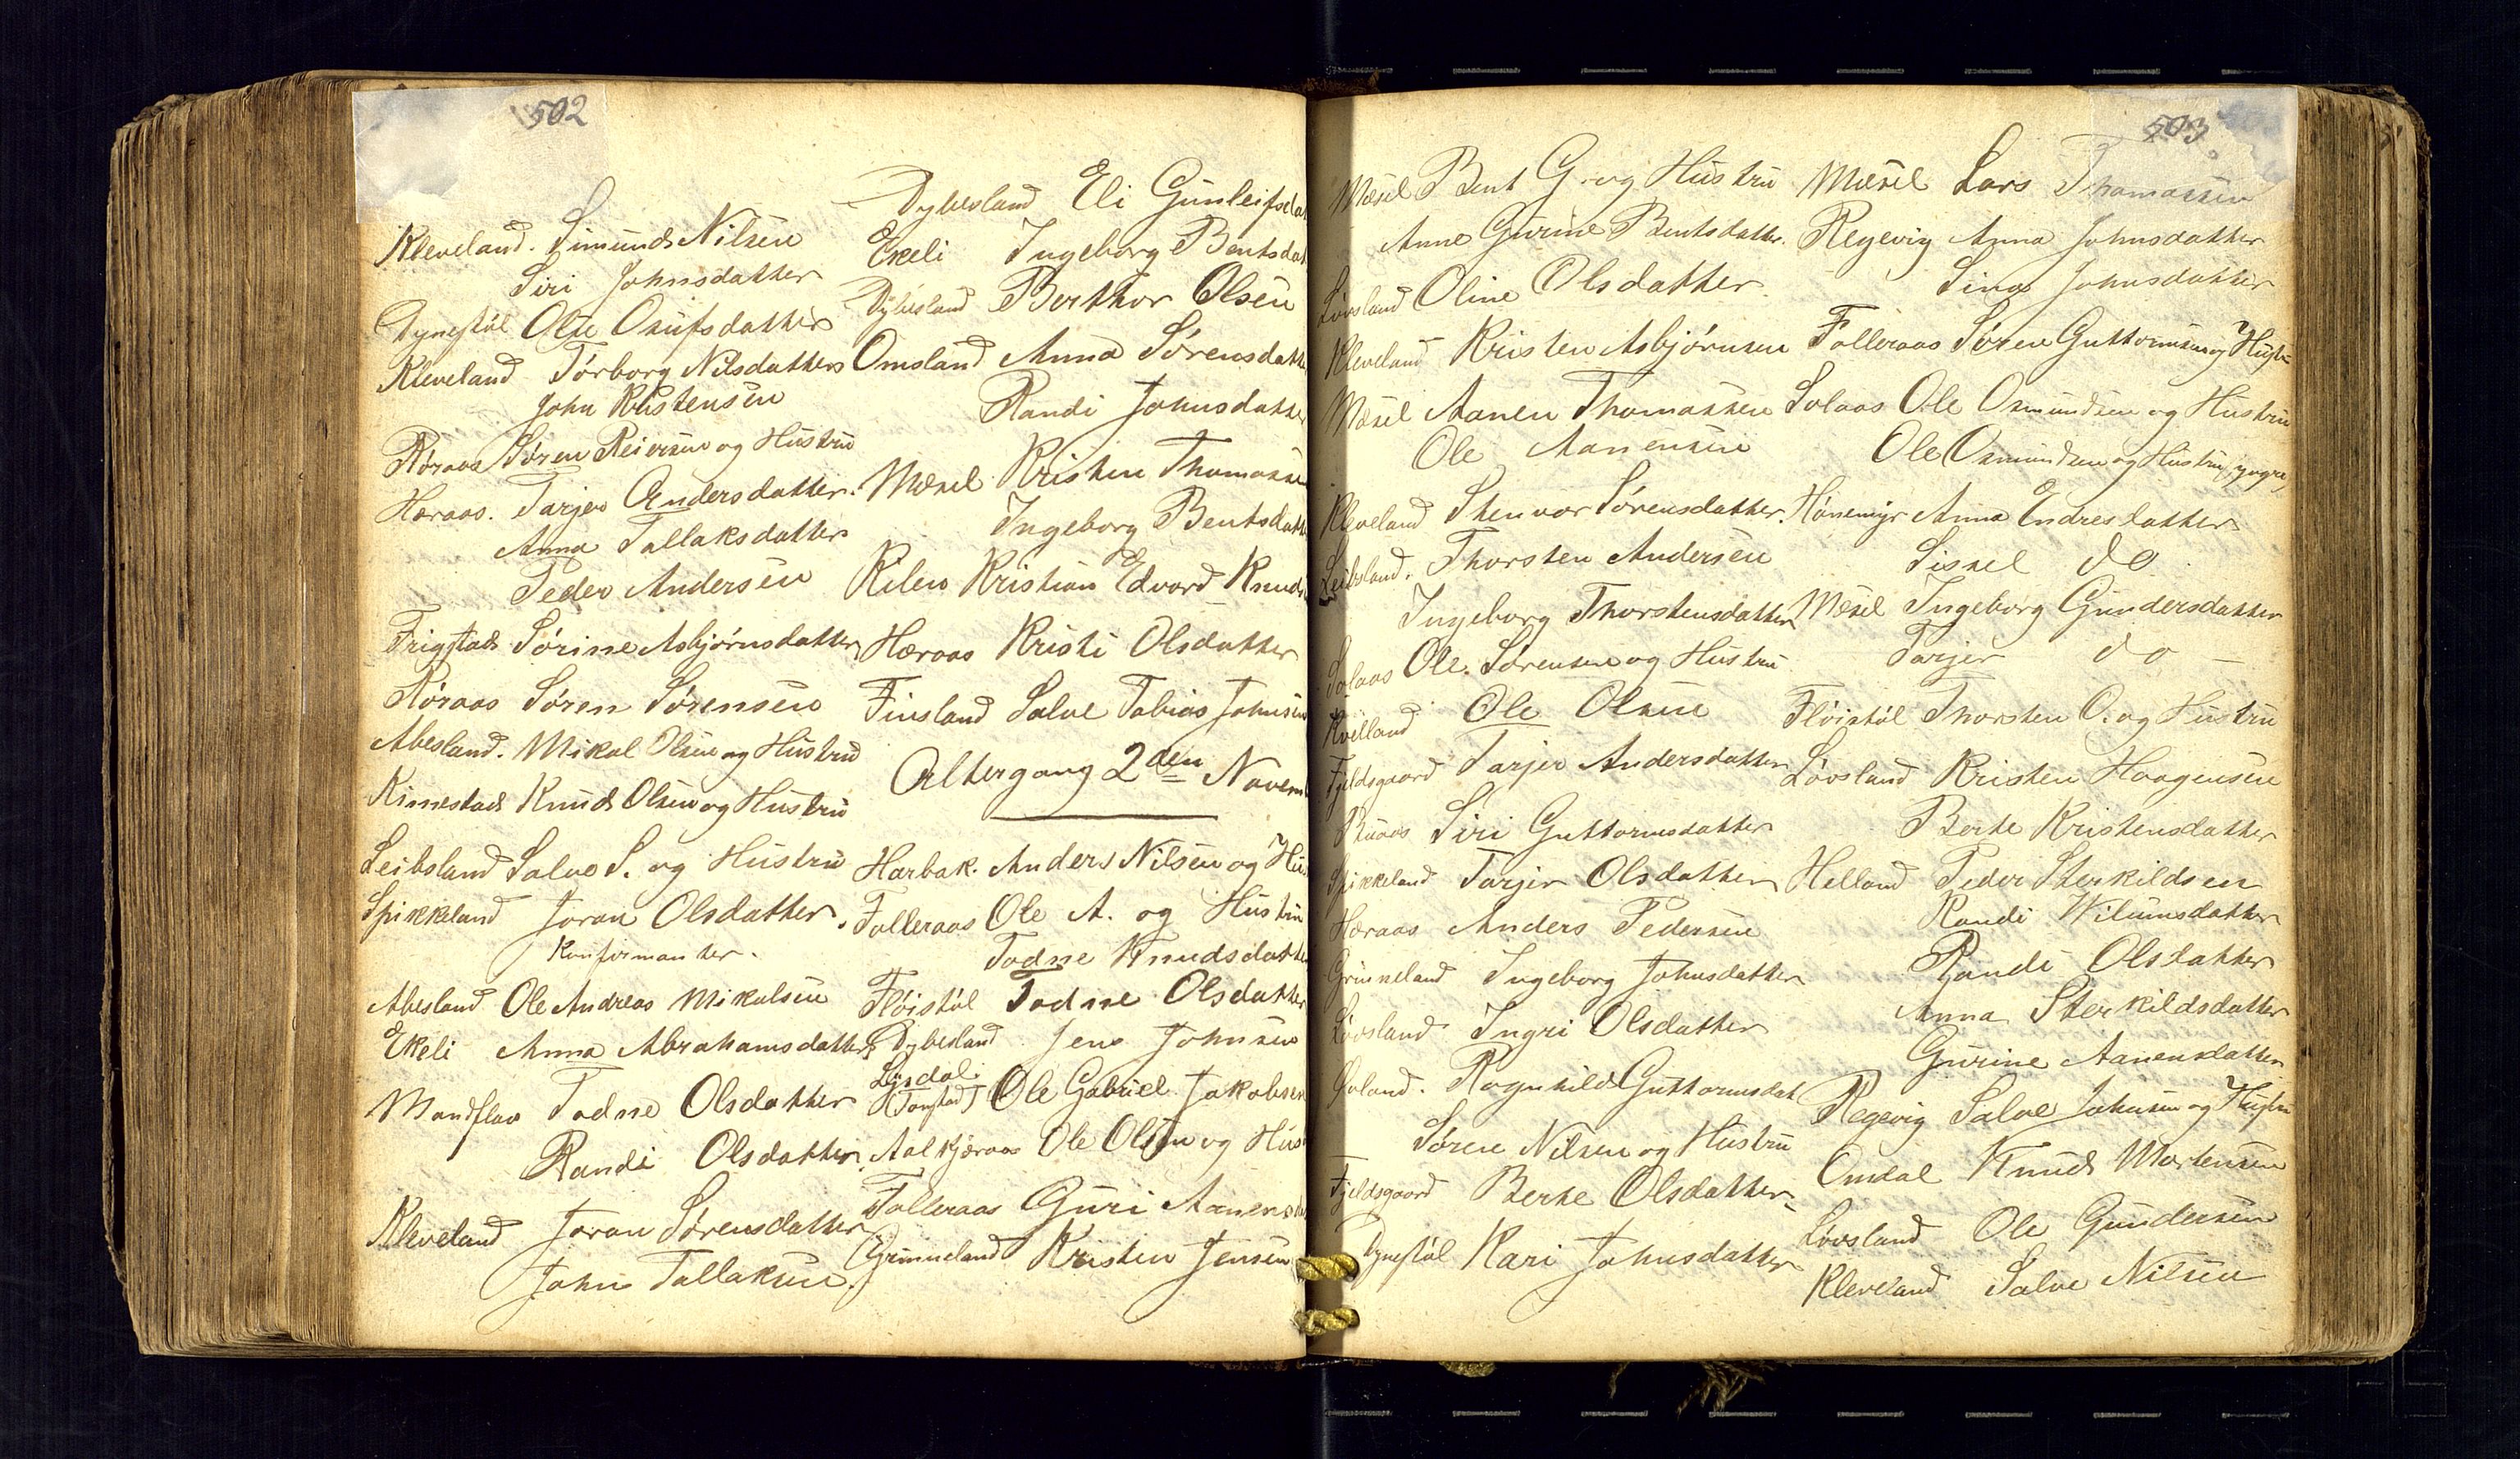 502
Kleveland. Simund Nilsen
Siri Johnsdatter
Dynestøl Olene Osufsdatter
Kleveland Tørborg Nilsdatter
John Kristensen
Røraas Søren Reiersen og Hustru
Høraas. Tarjer Andersdatter.
Anna Tallaksdatter
Peder Andersen
Trigstad Sørine Asbjørnsdatter
Røraas Søren Sørensen
Abesland. Mikal Olsen og Hustru
Kinestad Knud Olsen og Hustru
Leibsland Salve S. og Hustru
Spikkeland Joran Olsdatter
Konfirmanter.
Abesland Ole Andreas Mikalsen
Ekeli Anna Abrahamsdatter
Mandflaa Todne Olsdatter
Randi Olsdatter
Kleveland Joran Sørensdatter
John Tallaksen.
Dybesland Eli Gunleifsdat
Ekeli Ingeborg Bentsdat
Dybesland Berthor Olsen
Omsland Anna Sørensdatter
Randi Johnsdatter
Mæsel Kristen Thomassen
Ingeborg Bentsdatt
Kilen Kristian Edvard Knuds
Høraas Kristi Olsdatter
Finsland Salve Tobias Johnsen
Altergang 2den Novem
Harbak. Anders Nilsen og Hus
Falleraas Ole A. og Hustru
Todne Knudsdatter
Fløistøl Todne Olsdatter
Dybesland Jens Johnsen
Lindal (Tonstad) Ole Gabriel Jakobsen
Aalkjæraas Ole Olsen og Hus
Falleraas Guri Aanensd
Grimneland Kristen Jensen
503
Mæsel Bent G. og Hustru
Anne Gurine Bentsdatter.
Løvsland Oline Olsdatter
Kleveland Kristen Asbjørnsen
Mæsel Aanen Thomassen
Ole Aanensen
Kleveland Stenvor Sørensdatter.
Leibsland. Thorsten Andersen
Ingeborg Thorstensdatter
Solaas Ole Sørensen og Hustru
Kvelland Ole Olsen
Fjeldsgaard Tarjer Andersdatter
Ruaas Siri Guttormsdatter
Spikkeland Tarjer Olsdatter
Høraas Anders Pedersen
Grimneland Ingeborg Johnsdatter
Løvsland Ingri Olsdatter
Øvland. Ragnhild Guttormsdat
Søren Nilsen og Hustru
Fjeldsgaard Berte Olsdatter
Dynestøl Kari Johnsdatter
Mæsel Lars Thomassen
Regevig Anna Johnsdatter
Sina Johnsdatter
Falleraas Søren Guttormsen og Hustru
Solaas Ole Osmundsen og Hustru
Ole Osmundsen og Hustru (yngre)
Hønemyr Anna Endresdatter
Sissel do
Mæsel Ingeborg Gundersdatter
Tarjer do —
Fløistøl Thorsten O. og Hustru
Løvsland Kristen Haagensen
Berte Kristensdatter
Helland Peder Sterkildsen
Randi Wilumsdatter
Randi Olsdatter
Anna Sterkildsdatter
Gurine Aanensdatter
Regevig Salve Johnsen og Hustru
Omdal Knud Mortensen
Løvsland Ole Gundersen
Kleveland Salve Nilsen